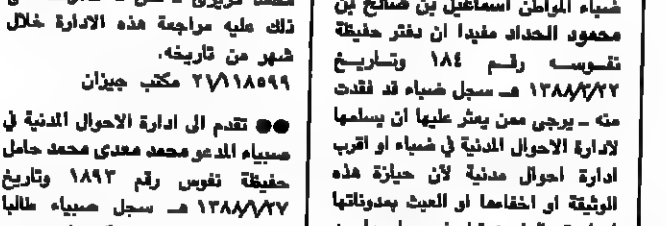 ضباء المواطن اسماعيل بن صالح بن
محمود الحداد مفيدا ان دفتر حفيظة
نفوسه رقم ١٨٤ وتاريخ
١٣٨٨/٢/٢٢ هـ سجل ضباء قد فقدت
منه ـ يرجى ممن يعثر عليها ان يسلمها
لادارة الاحوال المدنية في ضباء او اقرب
ادارة احوال مدنية لأن حيازة هذه
الوثيقة او اخفاءها او العبث بمدوناتها
ذلك عليه مراجعة هذه الادارة خلال
شهر من تاريخه.
٢١/١١٨٥٩٩ مكتب جيزان
●● تقدم الى ادارة الاحوال المدنية في
صبياء المدعو محمد معدى محمد حامل
حفيظة نفوس رقم ١٨٩٣ وتاريخ
١٣٨٨/٧/٢٧ هـ سجل صبياء طالبا